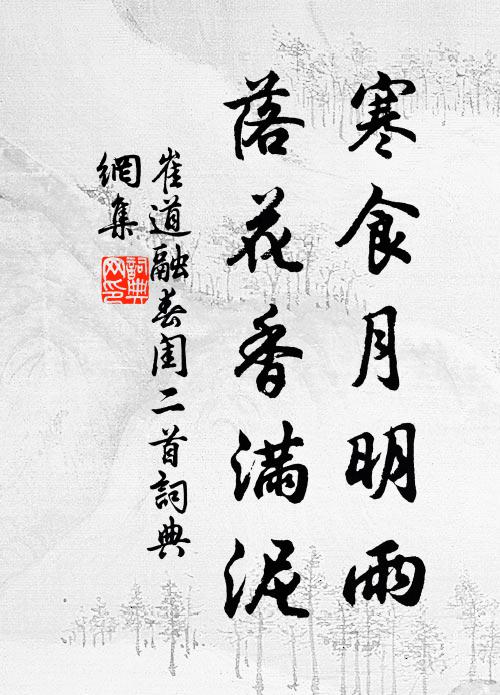 寒食月明雨
落花香滿泥
崔道融春閨二首詞典
網集
詞典网印